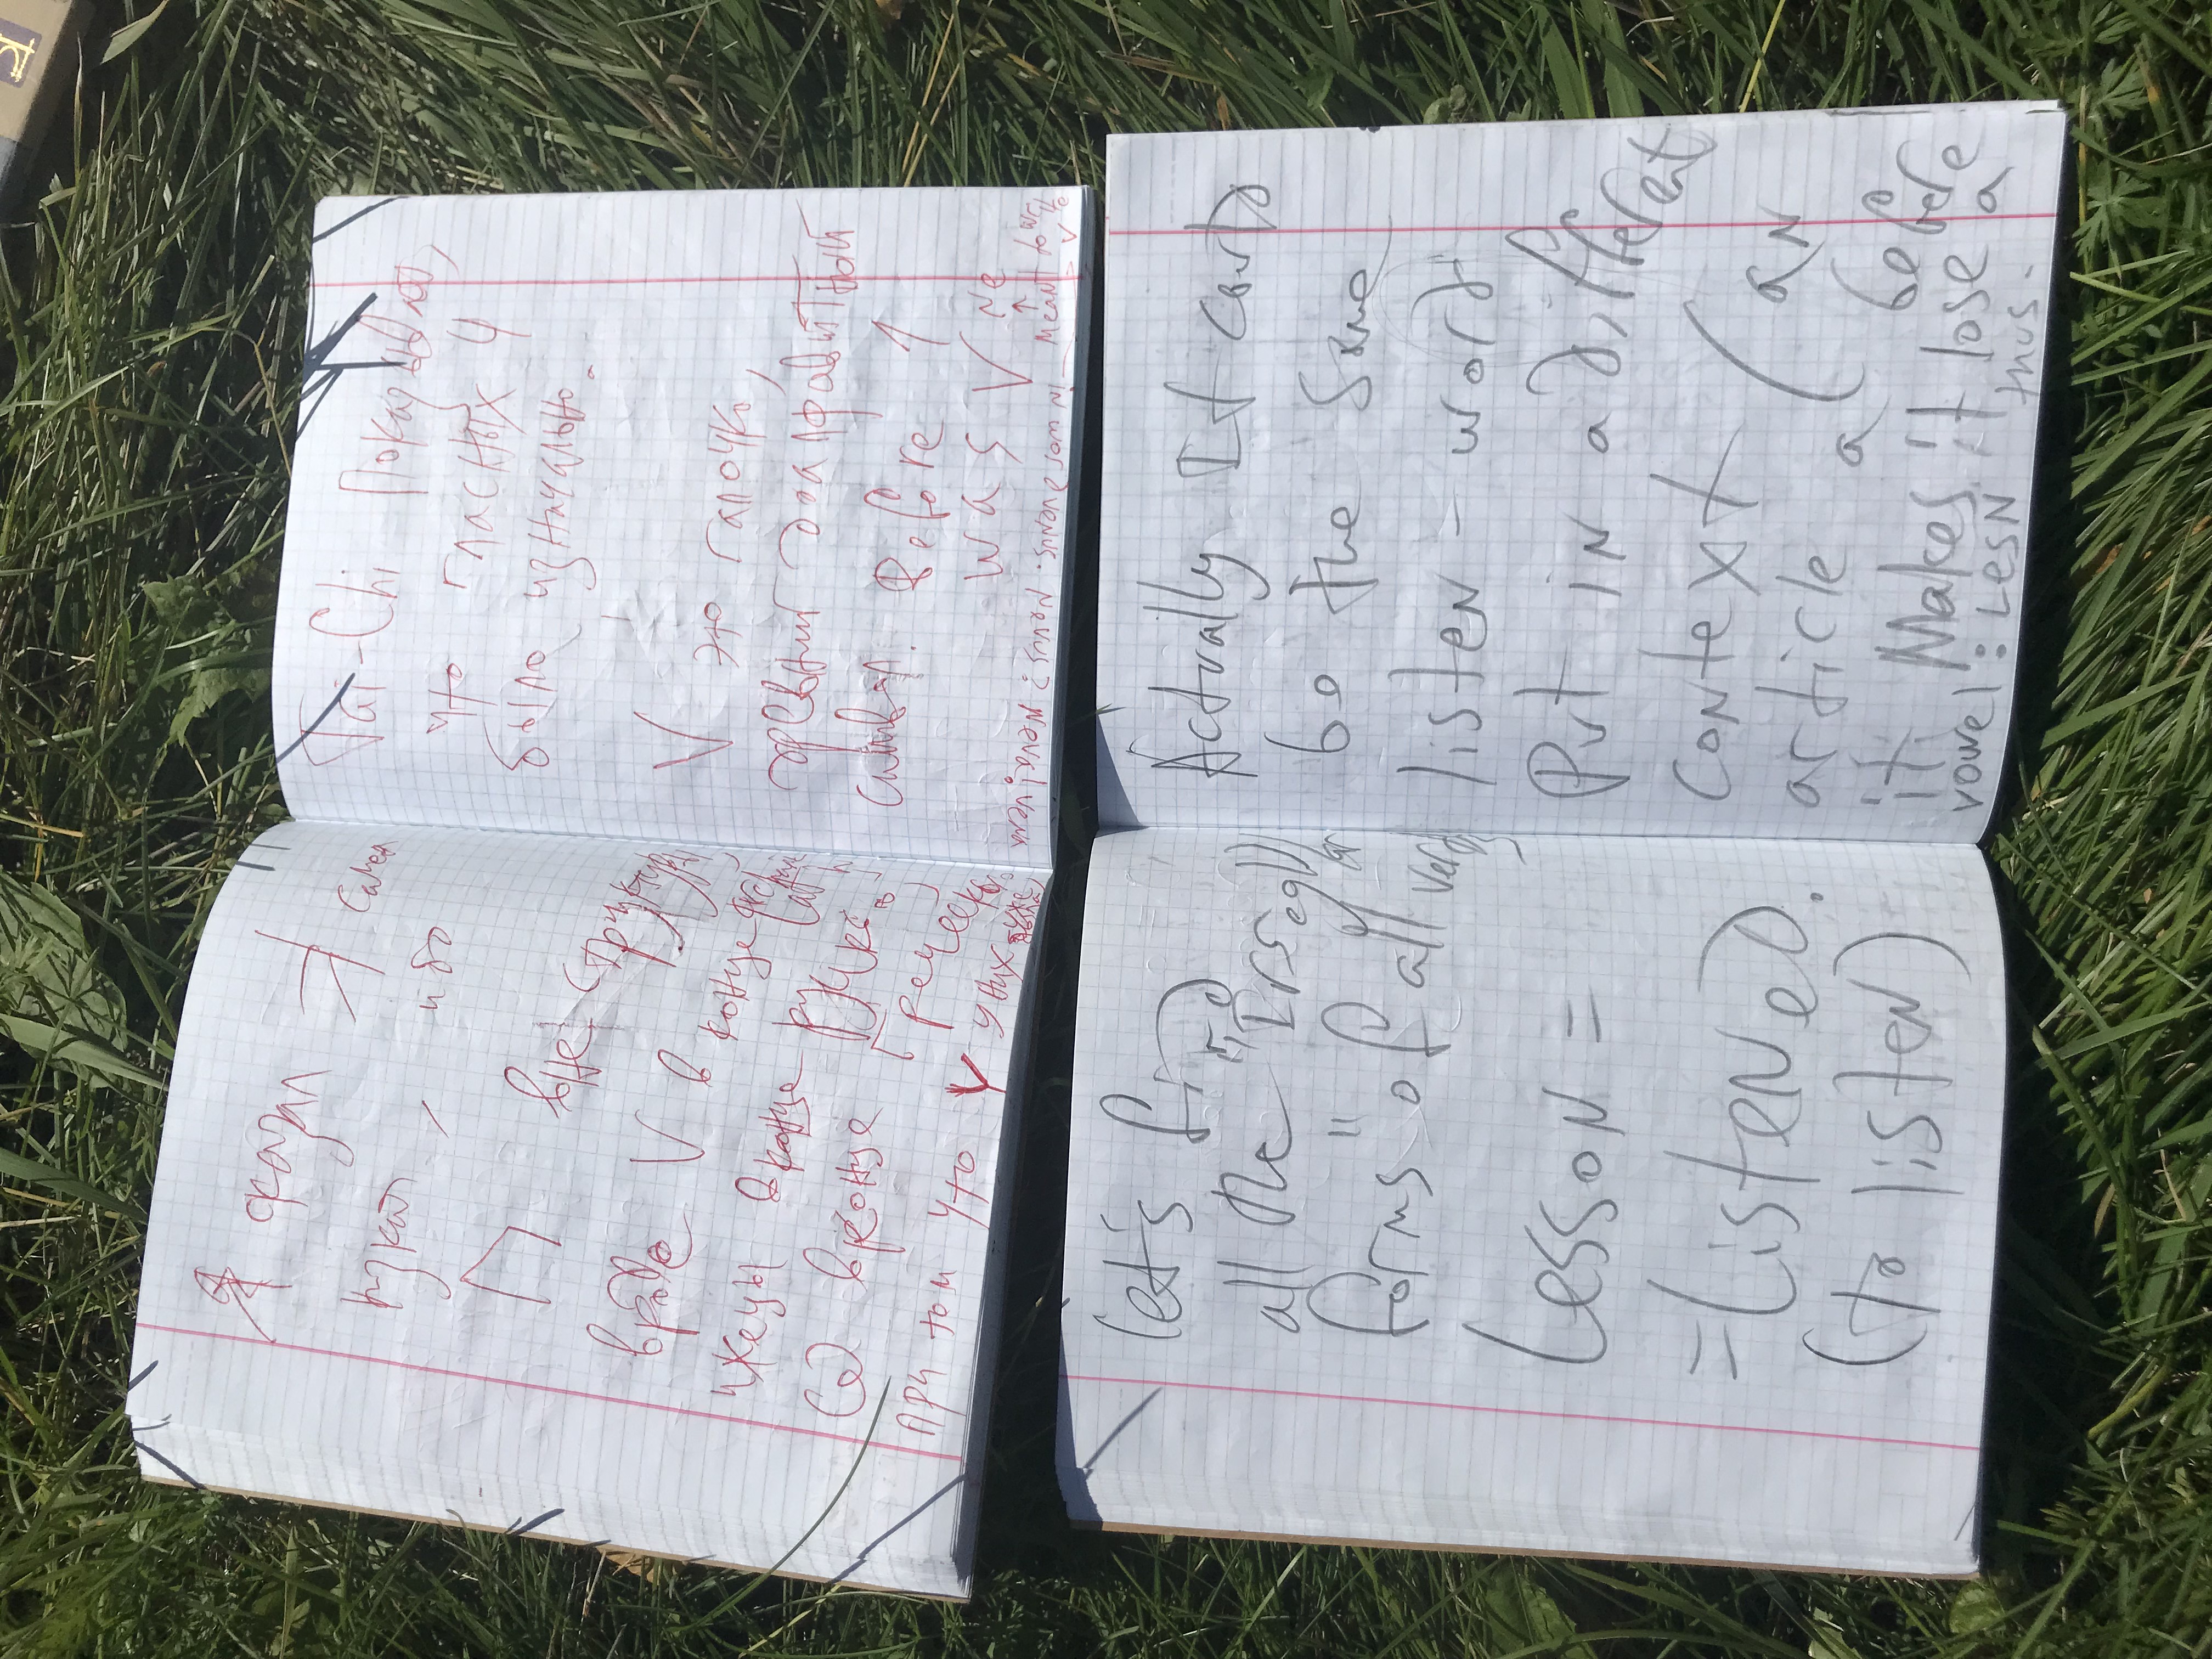 Я сказал Ⅎ самая
низкая, ибо
Π вне структуры,
вроде V в конце
ижецы в конце русского,
Ѡ в конце Греческого,
При том что Y у них
Tai-Chi показывает,
что гласных 4
было изначально.
V это галочка,
древний доалфавитный
символ. Before 1
was V
Ne
meant to write
v
let's find
all the "Irregular
forms" of all verbs
Lesson =
= Listened.
(to listen)
Actually It could
be the same
listen – word
Put in a different
context
article a (an
before a
it. Makes it lose
vowel: LesN thus.